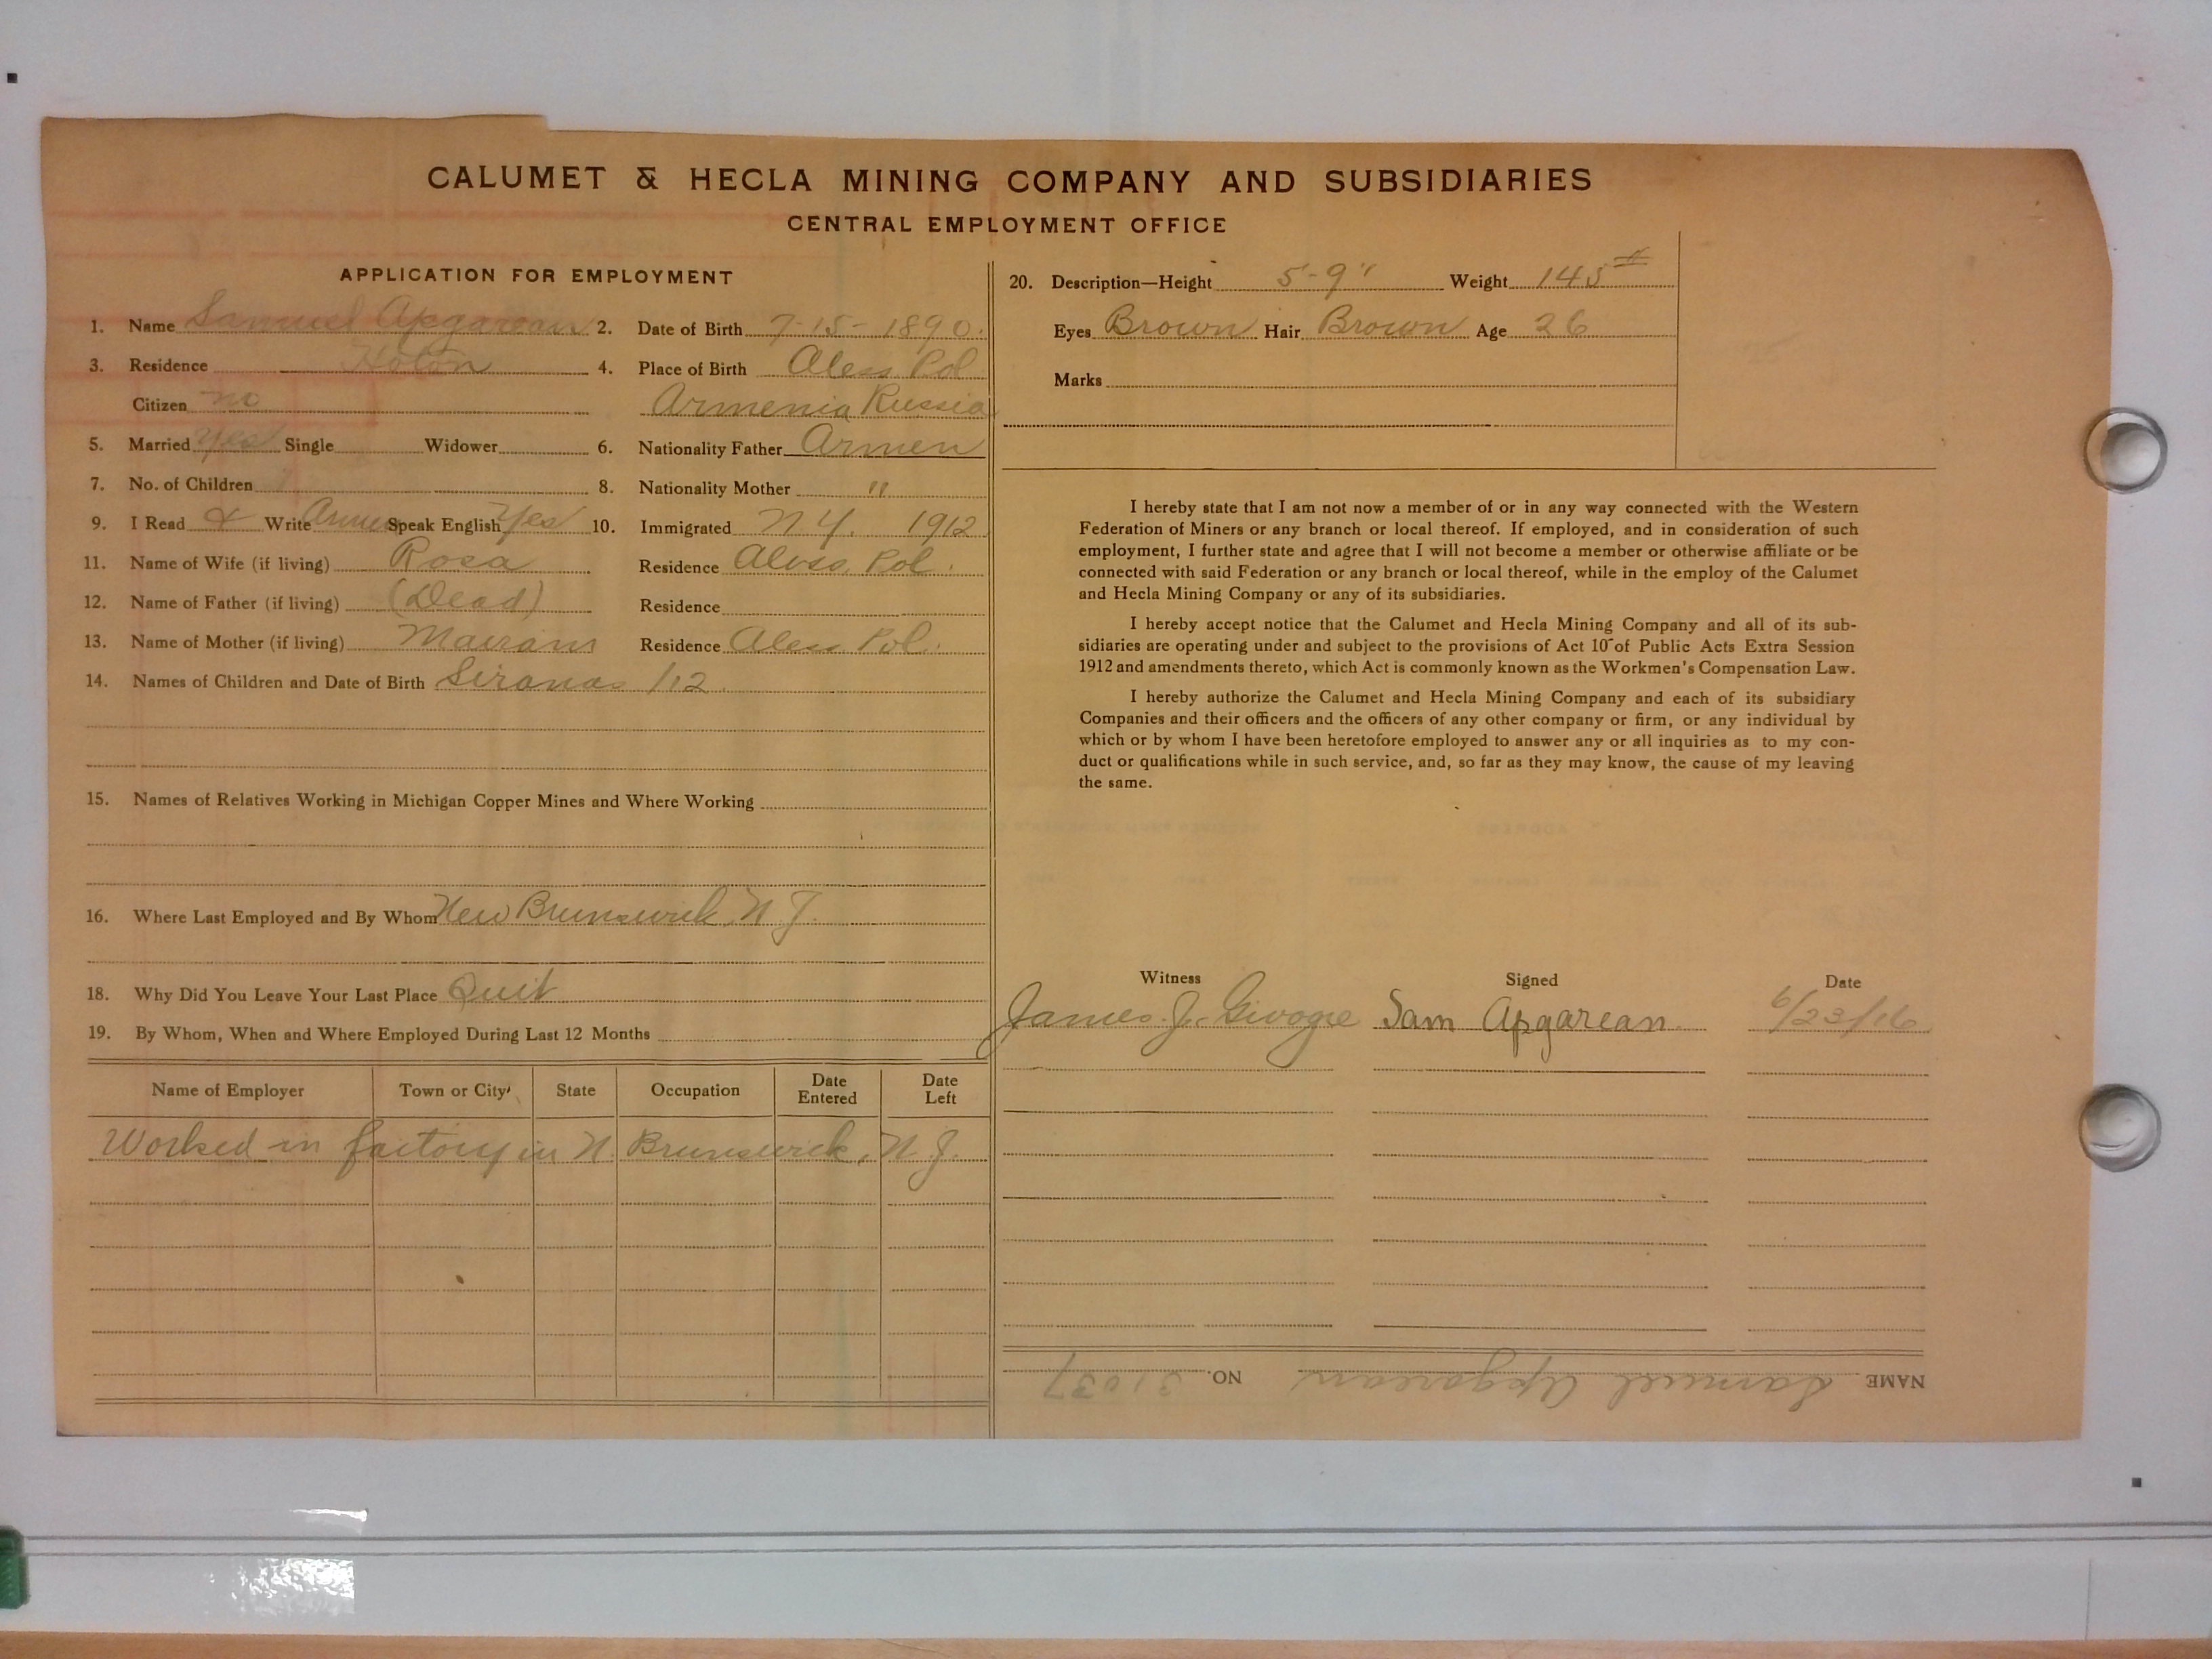 CALUMET & HECLA MINING COMPANY AND SUBSIDIARIES
CENTRAL EMPLOYMENT OFFICE
APPLICATION FOR EMPLOYMENT
1. Name Samuel Apgarean 2. Date of Birth 7-15-1890.
3. Residence 4. Place of Birth Aless Pol
Citizen no Armenia Russia
5. Married yes Single Widower 6. Nationality Father Armen
7. No. of Children 1 8. Nationality Mother "
9. I Read & Write Armen Speak English Yes 10. Immigrated N Y. 1912
11. Name of Wife (if living) Rosa Residence Pol.
12. Name of Father (if living) (Dead) Residence
13. Name of Mother (if living) Residence Aless Pol.
14. Names of Children and Date of Birth
15. Names of Relatives Working in Michigan Copper Mines and Where Working
16. Where Last Employed and By Whom New Brunswick, N J.
18. Why Did You Leave Your Last Place Quit
19. By Whom, When and Where Employed During Last 12 Months
Name of Employer Town or City State Occupation Date Entered Date Left
Worked in factory in N. Brunswick, N. J.
20. Description—Height 5-9" Weight 145#
Eyes Brown Hair Brown Age 26
Marks
I hereby state that I am not now a member of or in any way connected with the Western
Federation of Miners or any branch or local thereof. If employed, and in consideration of such
employment, I further state and agree that I will not become a member or otherwise affiliate or be
connected with said Federation or any branch or local thereof, while in the employ of the Calumet
and Hecla Mining Company or any of its subsidiaries.
I hereby accept notice that the Calumet and Hecla Mining Company and all of its sub-
sidiaries are operating under and subject to the provisions of Act 10 of Public Acts Extra Session
1912 and amendments thereto, which Act is commonly known as the Workmen's Compensation Law.
I hereby authorize the Calumet and Hecla Mining Company and each of its subsidiary
Companies and their officers and the officers of any other company or firm, or any individual by
which or by whom I have been heretofore employed to answer any or all inquiries as to my con-
duct or qualifications while in such service, and, so far as they may know, the cause of my leaving
the same.
Witness Signed Date
James J. Sam Apgarean 6/23/16
NAME Samuel Apgarean NO. 31037